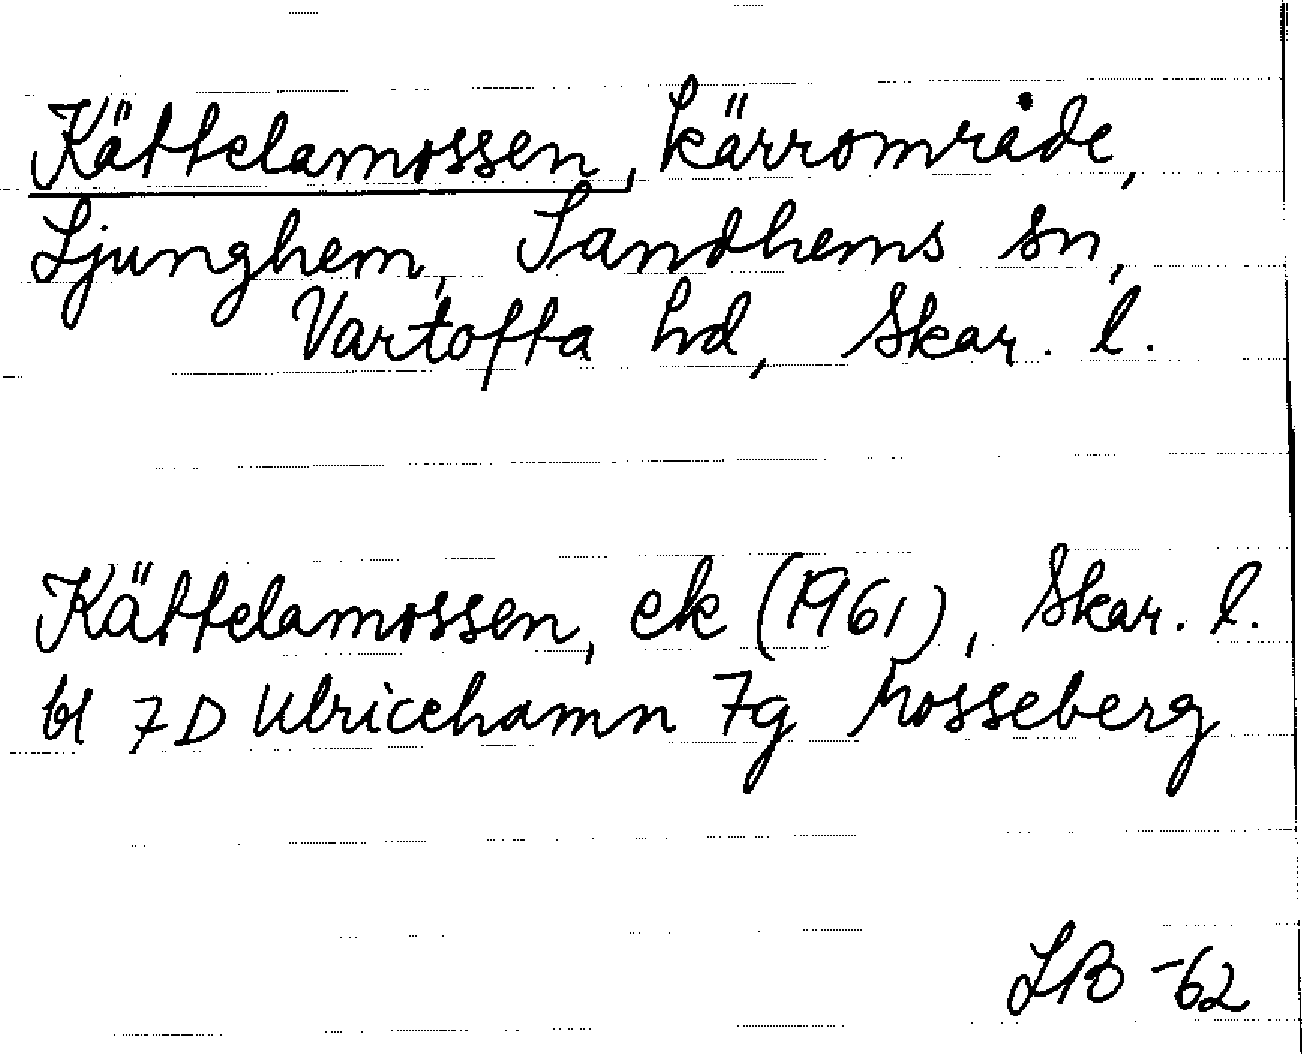 Kättelamossen, kärrområde,
Ljunghem, Sandhems sn,
Vartofta hd, Skar. l.
Kättelamossen, ek (1961), Skar. l.
bl 7D Ulricehamn 7g Mosseberg
LB -62